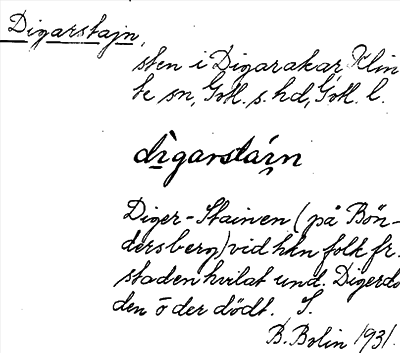 Digarstajn,
sten i Digarakar, Klin
te sn, Gotl. s. hd, Gotl. l.
dìgarstáin
Diger-Stainen (på Bön-
dersberg) vid hkn folk fr.
staden hvilat und. Digerdö
den ō der dödt. S.
B. Bolin 1931.